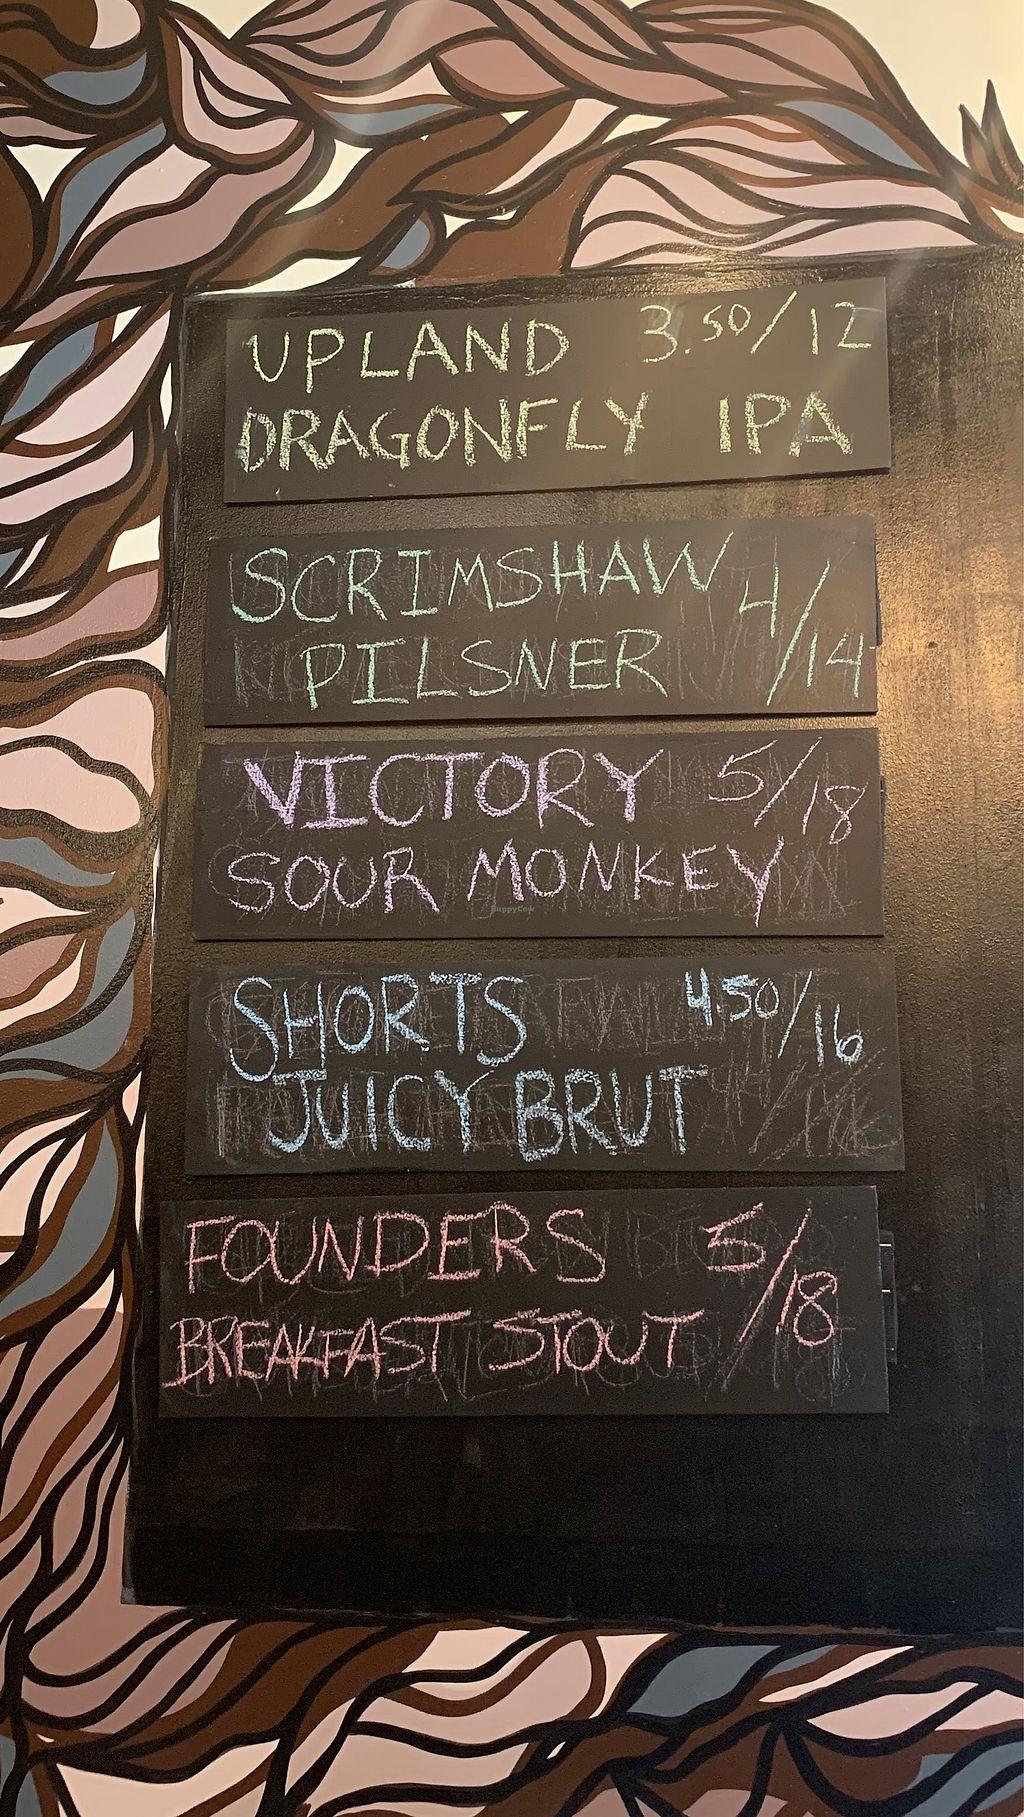 UPLAND 3.50/12
DRAGONFLY IPA
SCRIMSHAW 4/14
PILSNER
VICTORY 5/18
SOUR MONKEY
HappyCow
SHORTS 4.50/16
JUICY BRUT
FOUNDERS 5/18
BREAKFAST STOUT